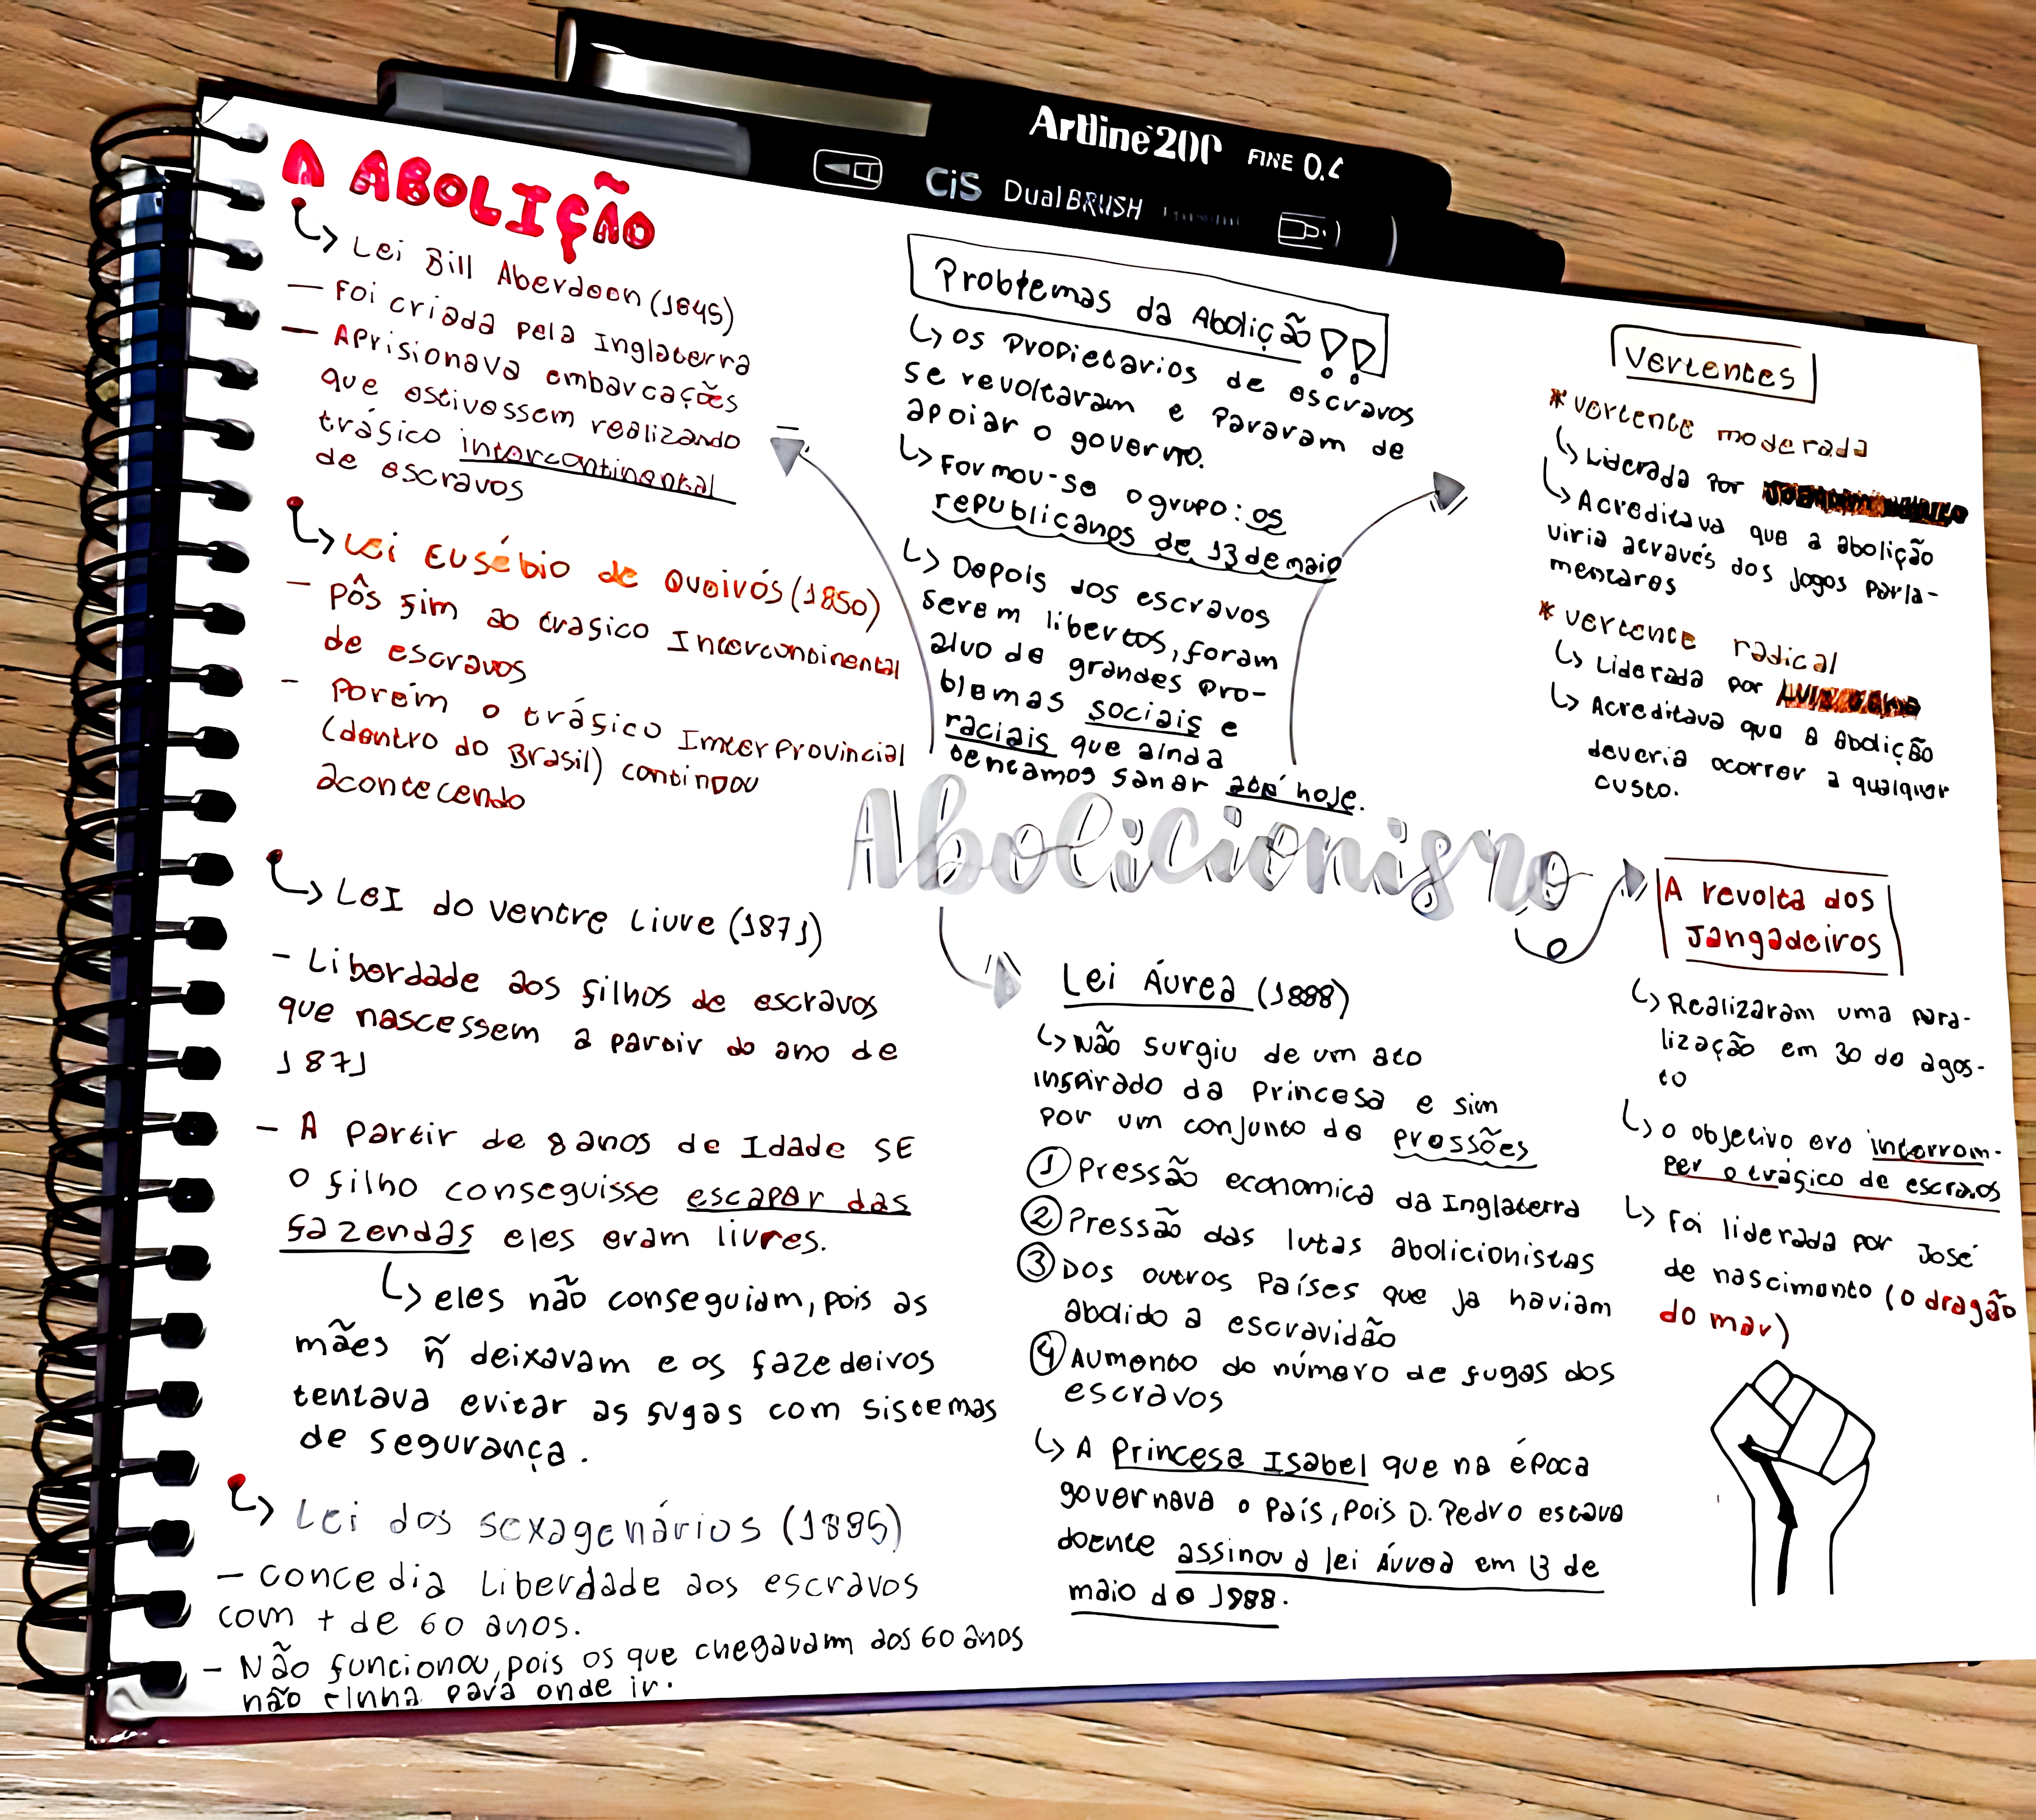 Artline 200 FINE 0.4
CiS Dual BRUSH
A ABOLIÇÃO
Lei Bill Aberdeen (1845)
- Foi criada pela Inglaterra
- Aprisionava embarcações
que estivessem realizando
tráfico intercontinental
de escravos
Lei Eusébio de Queirós (1850)
- Pôs fim ao trafico Intercontinental
de escravos
- Porém o tráfico Interprovincial
(dentro do Brasil) continou
acontecendo
LeI do ventre Livre (1871)
- Liberdade aos filhos de escravos
que nascessem a partir do ano de
1871
- A partir de 8 anos de Idade SE
o filho conseguisse escapar das
fazendas eles eram livres.
eles não conseguiam, pois as
mães ñ deixavam e os fazedeiros
tentava evitar as fugas com sistemas
de segurança.
Lei dos sexagenários (1885)
- concedia Liberdade aos escravos
com + de 60 anos.
- Não funcionou, pois os que chegavam aos 60 anos
não tinha para onde ir.
Problemas da Abolição !!
os propietarios de escravos
se revoltaram e pararam de
apoiar o governo.
Formou-se o grupo: os
republicanos de 13 de maio
Depois dos escravos
serem libertos, foram
alvo de grandes pro-
blemas sociais e
raciais que ainda
tentamos sanar até hoje.
Abolicionismo
Lei Áurea (1888)
Não surgiu de um ato
inspirado da princesa e sim
por um conjunto de pressões
1 Pressão economica da Inglaterra
2 Pressão das lutas abolicionistas
3 Dos outros países que ja haviam
abolido a escravidão
4 Aumento do número de fugas dos
escravos
A Princesa Isabel que na época
governava o país, pois D. Pedro estava
doente assinou a lei Áurea em 13 de
maio de 1988.
Vertentes
* vertente moderada
Liderada por
Acreditava que a abolição
viria através dos jogos parla-
mentares
* vertente radical
Liderada por
Acreditava que a abolição
deveria ocorrer a qualquer
custo.
A revolta dos
Jangadeiros
Realizaram uma para-
lização em 30 de agos-
to
o objetivo era interrom-
per o tráfico de escravos
Foi liderada por José
de nascimento (o dragão
do mar)